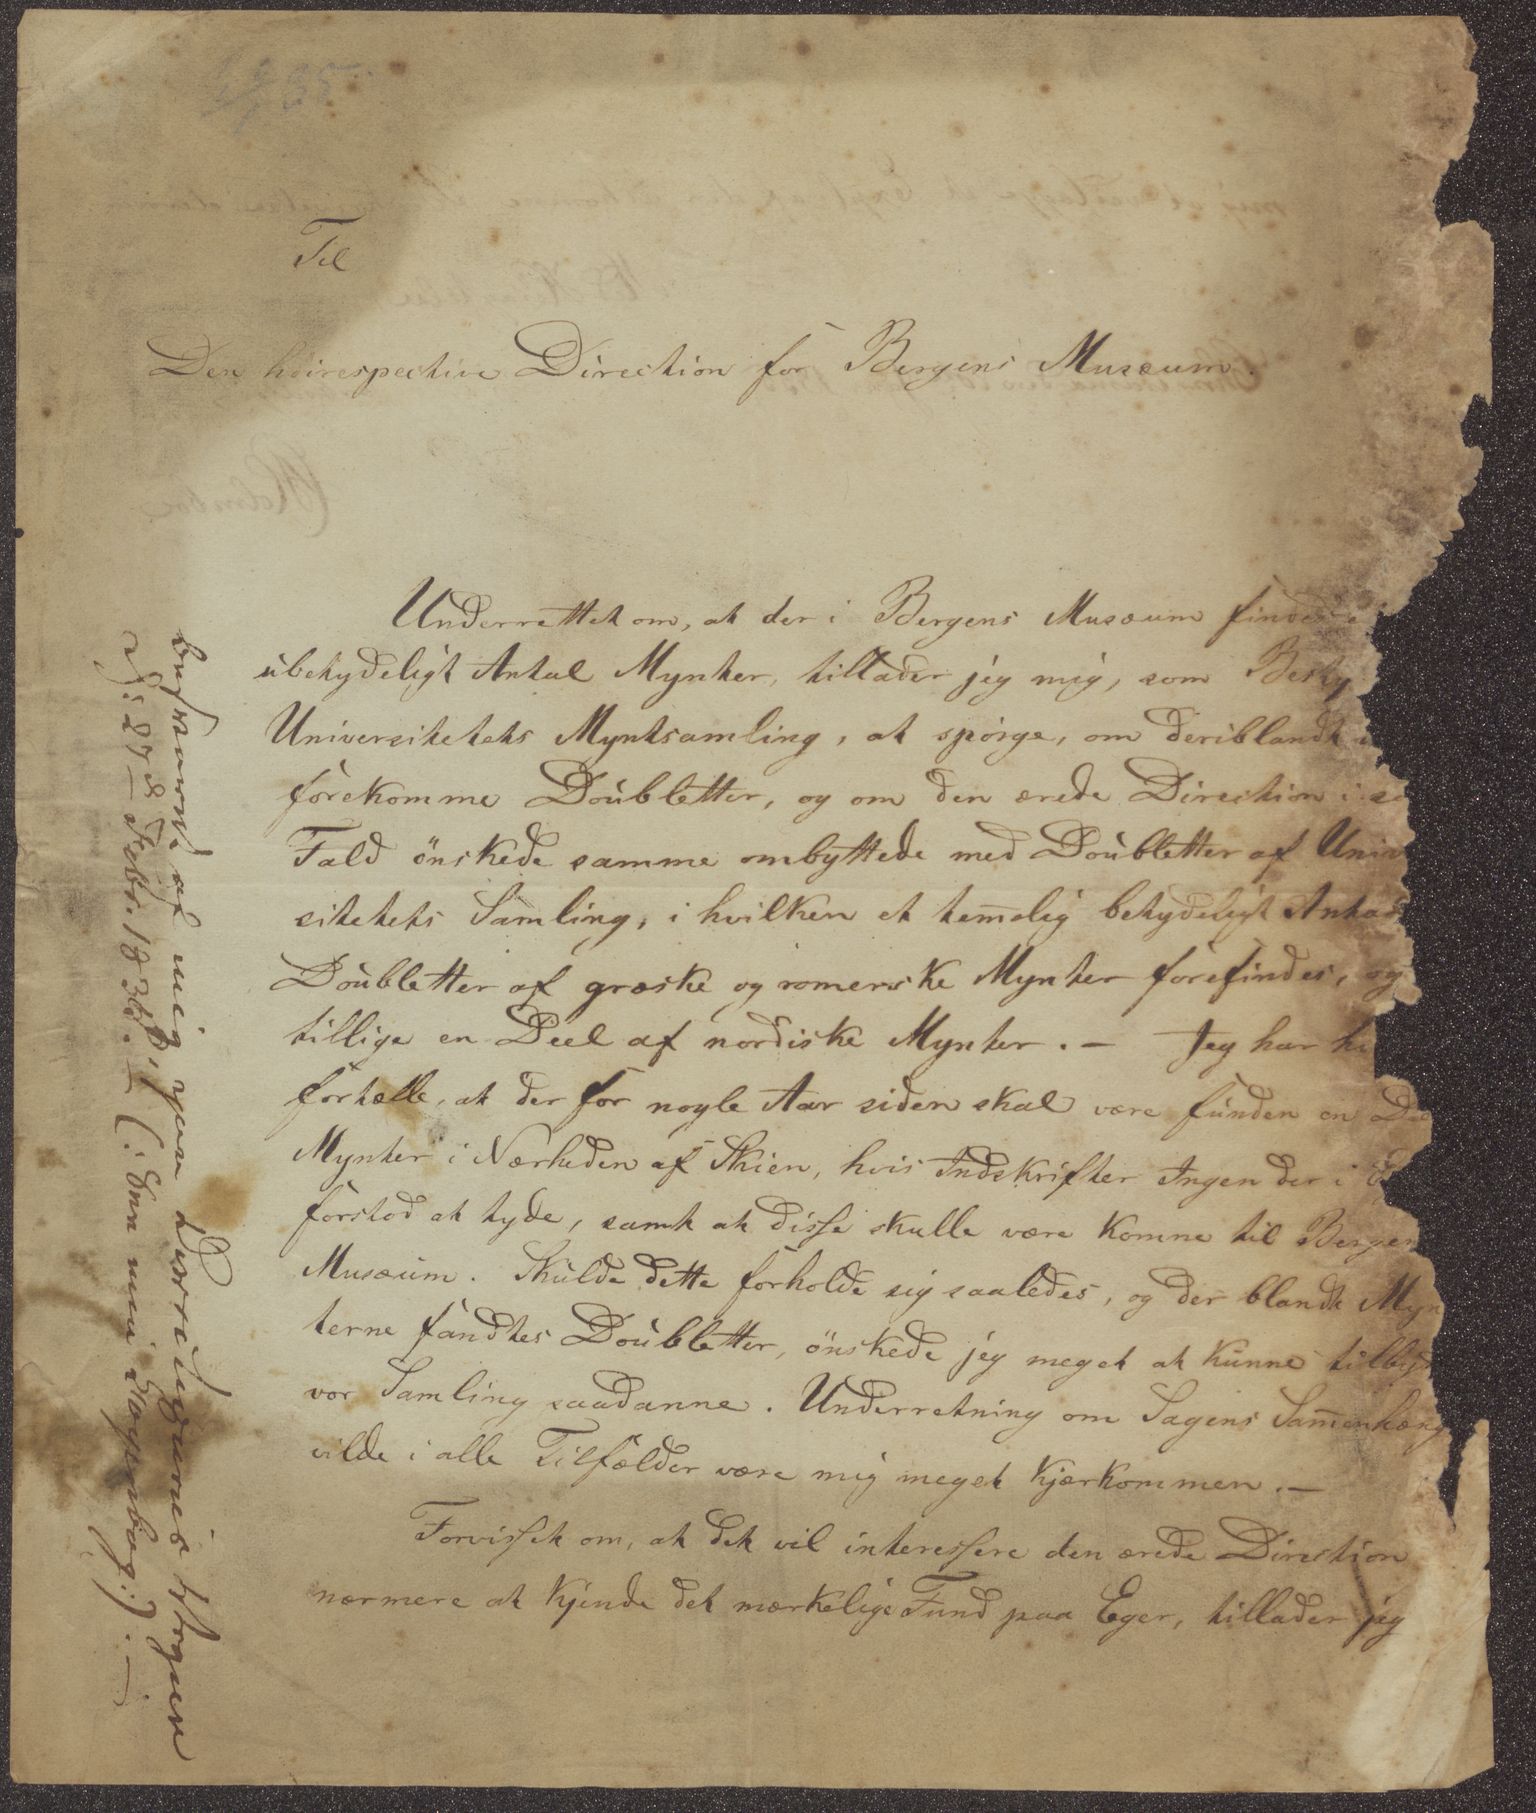 1/4 35.
Til
Den höirespective Direction for Bergens Musæum.
Underrettet om, at der i Bergens Musæum findes e
ubetydeligt Antal Mynter, tillader jeg mig, som Besty
Universitetets Myntsamling, at spörge, om deriblandt
forekomme Doubletter, og om den ærede Direction i sa
Fald önskede samme ombyttede med Doubletter af Univer
sitetets Samling, i hvilken et tem̅elig betydeligt Antal
Doubletter af græske og romerske Mynter forefindes, og
tillige en Deel af nordiske Mynter. – Jeg har hö
fortælle, at der for nogle Aar siden skal være funden en De
Mynter i Nærheden af Skien, hvis Indskrifter Ingen der i E
forstod at tyde, samt at disse skulle være komne til Bergen
Musæum. Skulde dette forholde sig saaledes, og der blandt Myn
terne fandtes Doubletter, önskede jeg meget at kunne tilbyt
vor Samling saadanne. Underretning om Sagens Sam̅enhæng
vilde i alle Tilfælder være mig meget kjærkommen. –
Forvisset om, at det vil interessere den ærede Direction
nærmere at kjende det mærkelige Fund paa Eger, tillader jeg
Besvaret af mig paa Directionens Vegne
d: 27de Febr. 1835. – (: See min Copiebog :). –
Holmboe